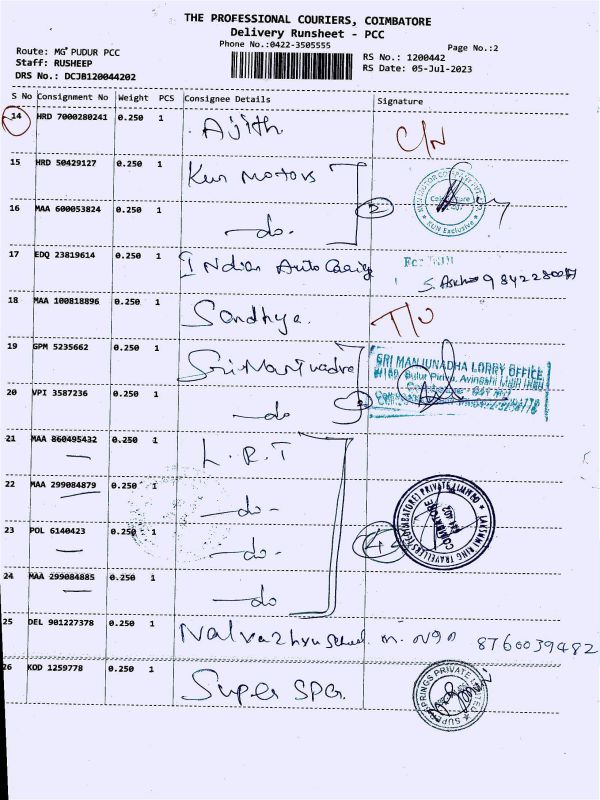 THE PROFESSIONAL COURIERS, COIMBATORE
Delivery Runsheet - PCC
Phone No.:0422-3505555
Page No.:2
Route: MG PUDUR PCC
RS No.: 1200442
Staff: RUSHEEP
RS Date: 05-Jul-2023
DRS No.: DCJB120044202
S No Consignment No Weight PCS Consignee Details Signature
14 HRD 7000280241 0.250 1 Ajith C/N
15 HRD 50429127 0.250 1 Kun Motors
16 MAA 600053824 0.250 1 -do- 2
KUN Exclusive
17 EDQ 23819614 0.250 1 Indian Auto 9842280017
18 MAA 100818896 0.250 1 Sandhya T/U
19 GPM 5235662 0.250 1 Sri Manjunadra
SRI MANJUNADHA LORRY OFFICE
20 VPI 3587236 0.250 1 -do 2
21 MAA 860495432 0.250 1 L.R.T
22 MAA 299084879 0.250 1 -do-
23 POL 6140423 0.250 1 -do- 4
24 MAA 299084885 0.250 1 -do
LAKSHMI RING TRAVELLERS (COIMBATORE) PRIVATE LIMITED
COIMBATORE
641 402
25 DEL 901227378 0.250 1 8760039482
26 KOD 1259778 0.250 1 Super SPG.
SUPER SPRINGS PRIVATE LIMITED